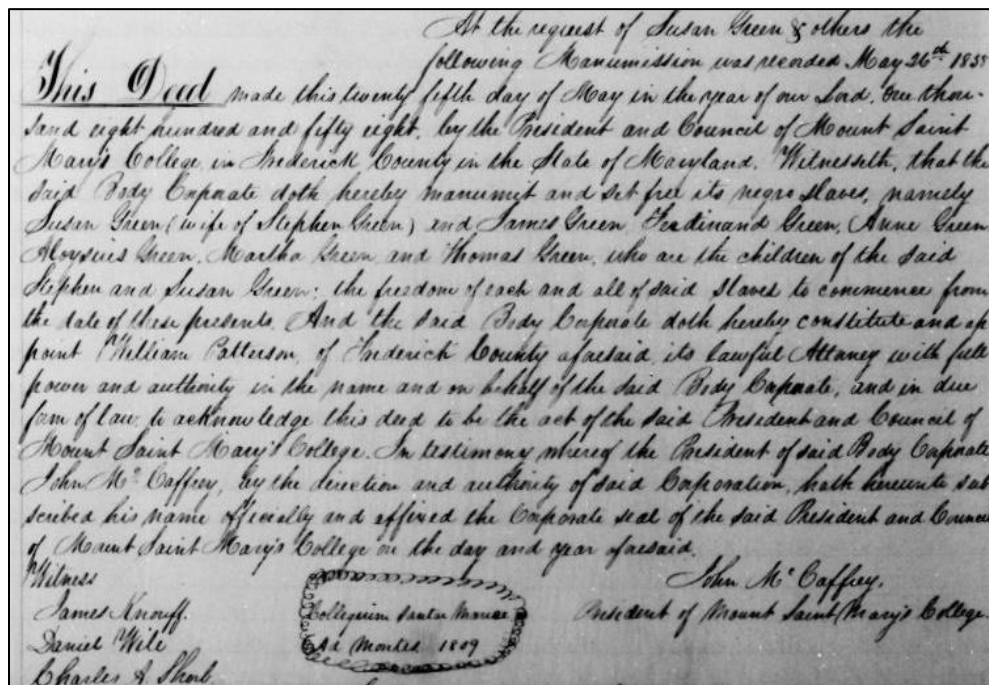 At the request of Susan Green & others the
following Manumission was recorded May 26th 1858
This Deed made this twenty fifth day of May in the year of our Lord, One thou-
sand eight hundred and fifty eight, by the President and Council of Mount Saint
Mary's College in Frederick County in the State of Maryland. Witnesseth, that the
said Body Corporate doth hereby manumit and set free its negro slaves, namely
Susan Green (wife of Stephen Green) and James Green, Ferdinand Green, Anne Green
Aloysius Green, Martha Green and Thomas Green, who are the children of the said
Stephen and Susan Green; the freedom of each and all of said slaves to commence from
the date of these presents. And the said Body Corporate doth hereby constitute and ap
point William Patterson, of Frederick County aforesaid, its lawful Attorney with full
power and authority in the name and on behalf of the said Body Corporate, and in due
form of law, to acknowledge this deed to be the act of the said President and Council of
Mount Saint Mary's College. In testimony whereof the President of said Body Corporate
John McCaffrey, by the direction and authority of said Corporation, hath hereunto sub
scribed his name officially and affixed the Corporate seal of the said President and Council
of Mount Saint Mary's College on the day and year aforesaid.
Witness
John McCaffrey,
James Knouff.
Collegium Sanctae Mariae
President of Mount Saint Mary's College.
Daniel Wile
Ad Montes 1809
Charles A. Shorb